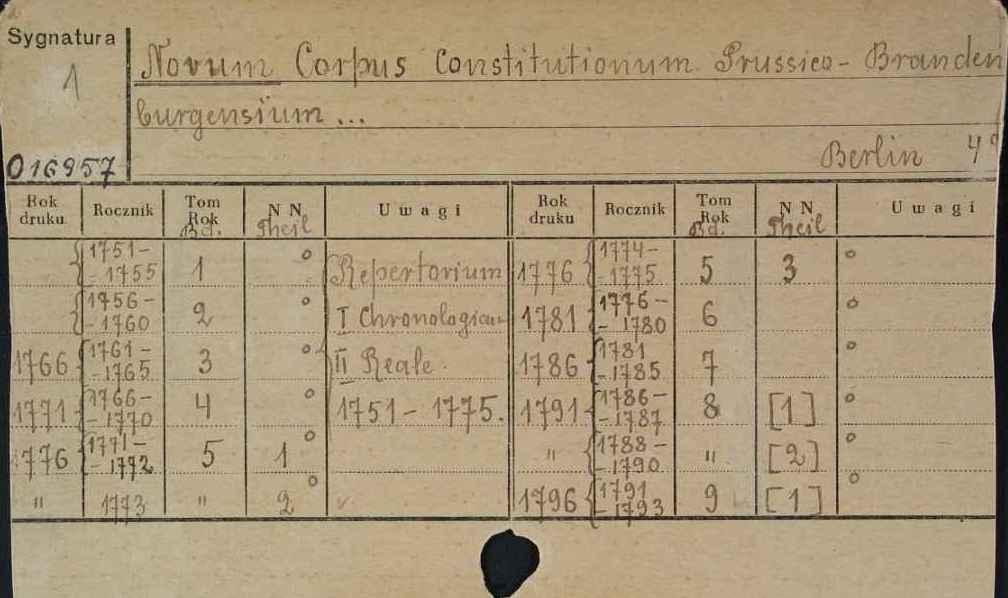 Sygnatura
1
016957
Novum Corpus Constitutionum Prussico- Branden
burgensium ...
Berlin 4°
Rok druku Rocznik Tom Rok Bd. N N Theil Uwagi Rok druku Rocznik Tom Rok Bd. N N Theil Uwagi
{1751- -1755 1 ° Repertorium 1776 {1774- -1775 5 3 °
{1756- -1760 2 ° I Chronologicum 1781 {1776- -1780 6 °
1766 {1761- -1765 3 ° II Reale. 1786 {1781 -1785 7 °
1771 {1766- -1770 4 ° 1751 - 1775. 1791 {1786- -1787 8 [1] °
1776 {1771- -1772 5 1 ° " {1788- -1790 " [2] °
" 1773 " 2 ° 1796 {1791 -1793 9 [1] °